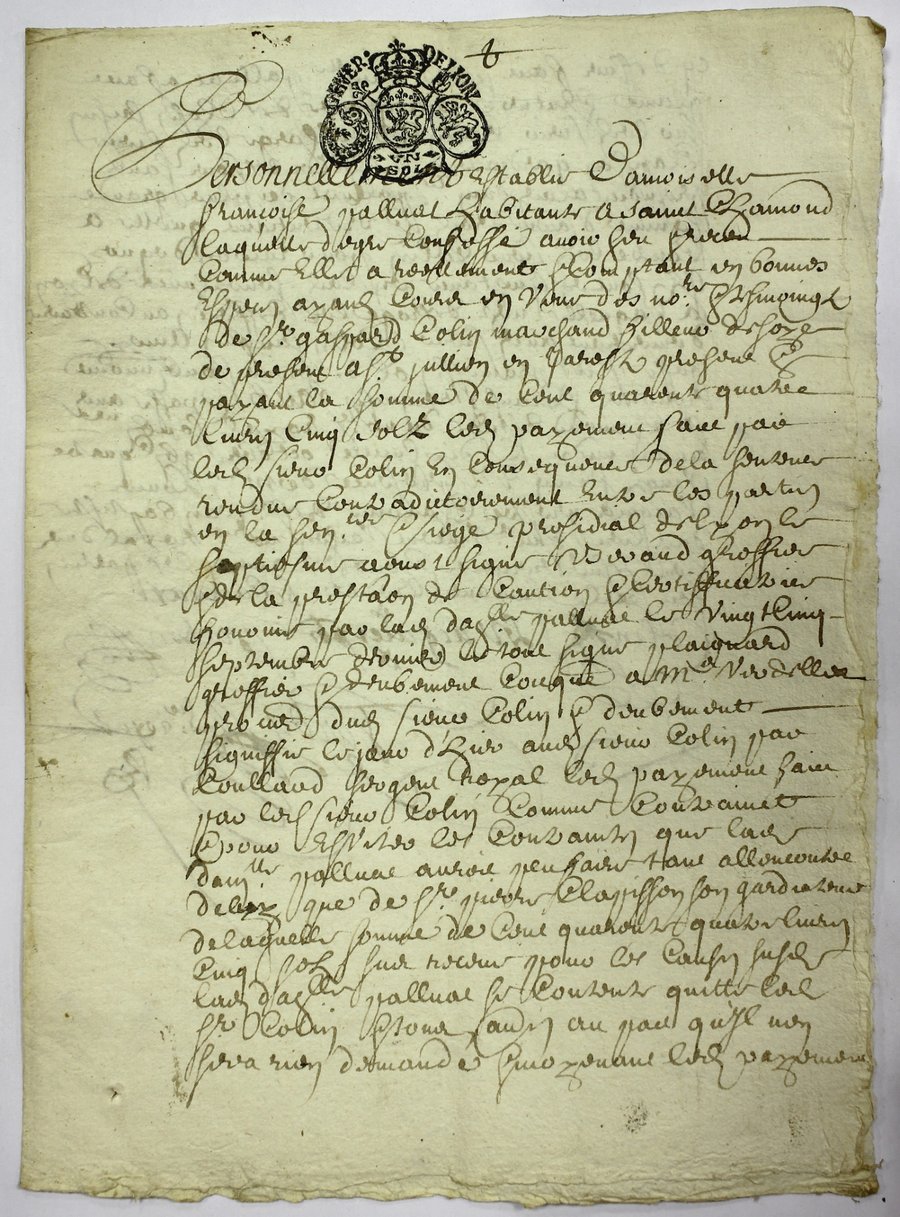 GENER· DE LION
VN SOL
Personnellement establie Damoiselle
francoise palluat habitante a Sainct Chamond
laquelle de gre confesse avoir heu receu
comme Elle a reellement & comptant en bonnes
Especes ayant cours en veue des no.re & tesmoingt
de Sr gaspard Colin marchand filleur de soye
de present a St jullien en Jarest present &
payant la somme de Cent quarente quatre
livres Cinq solz led payement faict par
led sieur Colin En Consequence de la sentence
rendue Contradictoirement Entre les parties
en la sen. & siege presidial de lyon le
septiesme aoust signe Beraud greffier
& de la prestaon de Caution & Certifficatoire
par lad dag.lle palluat le vingt Cinq
septembre dernier le tout signe plaignard
greffier & deubement a M.e Verdellet
procur dud sieur Colin & deubement
signiffie le jour d'hier aud sieur Colin par
Coulland sergent royal led payement faict
par led sieur Colin Comme Contrainct
& pour Esviter les Contraintes que lad
dam.lle palluat auroit peu faire tant allencontre
de luy que de Sr pierre Clapisson son gardiateur
de laquelle somme de Cent quarente quatre livres
Cinq solz receue pour les Causes susd
lad dag.lle palluat se Contente quitte led
Sr Colin & tous au par qu'Il n'en
sera rien demandé & moyenant led payement